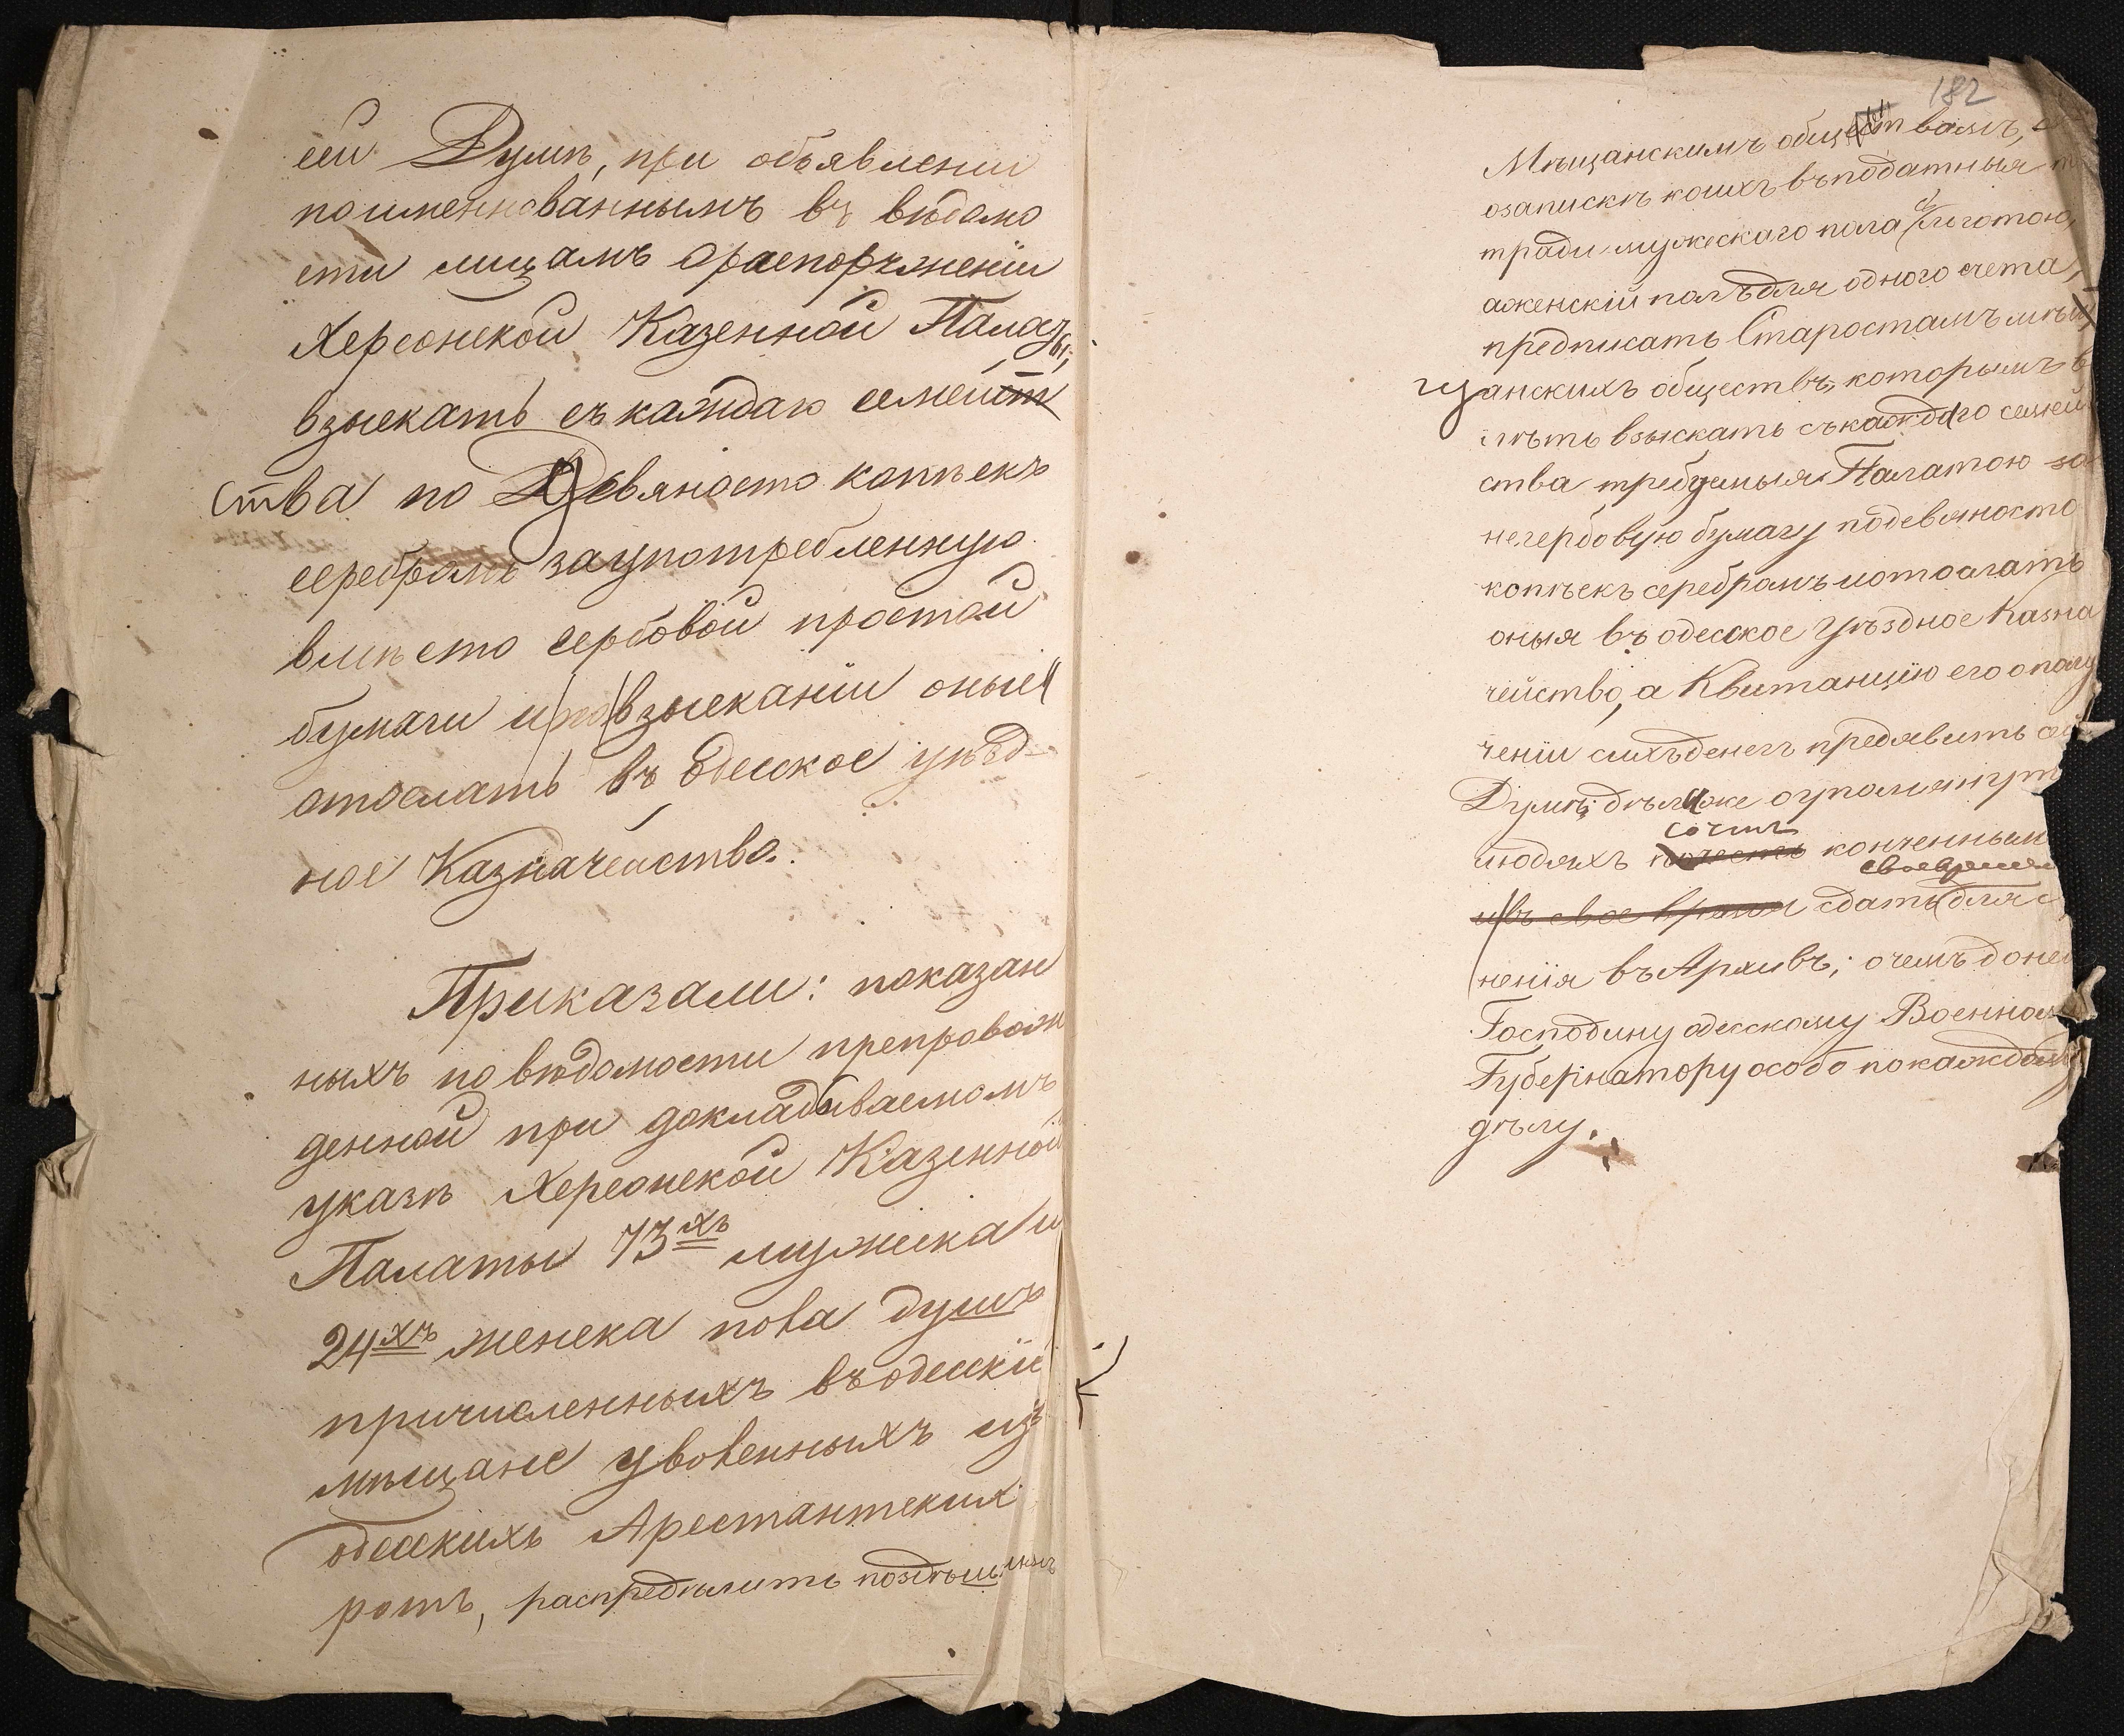 сей Думѣ, при объявленіи
поименнованнымъ въ вѣдомо
сти лицамъ о распоряженіи
Херсонской Казенной Палаты,
взыскать съ каждаго семей
ства по Девяносто копѣекъ
серебромъ за употребленную
вмѣсто гербовой простой
бумаги и по взысканіи оныя
отослать въ Одесское уѣзд-
ное Казначейство.
Приказали: показан
ныхъ по вѣдомости препровож
денной при докладываемомъ
указѣ Херсонской Казенной
Палаты 73хъ мужеска и
24хъ женска пола душъ
причисленныхъ въ одесскіе
мѣщане уволенныхъ изъ
одесскихъ Арестантскихъ
ротъ, распредѣлить по здѣшнимъ
182
Мѣщанскимъ обществамъ,
о запискѣ коихъ въ податныя
тради мужескаго пола съ льготою,
а женскій полъ для одного счета,
предписать Старостамъ мѣ
щанскихъ обществъ, которымъ в
мѣть взыскать съ каждаго семей
ства требуемыя Палатою за
негербовую бумагу по девяносто
копѣекъ серебромъ и отослать
оныя въ одесское Уѣздное Казна
чейство, а Квитанцію его о полу
ченіи сихъ денегъ предявить сей
Думѣ; дѣла же о упомянут
людяхъ сочтя конченным
своевремен
и въ свое время сдать для
ненія въ Архивъ; о чемъ доне
Господину одесскому Военном
Губернатору особо по каждому
дѣлу.